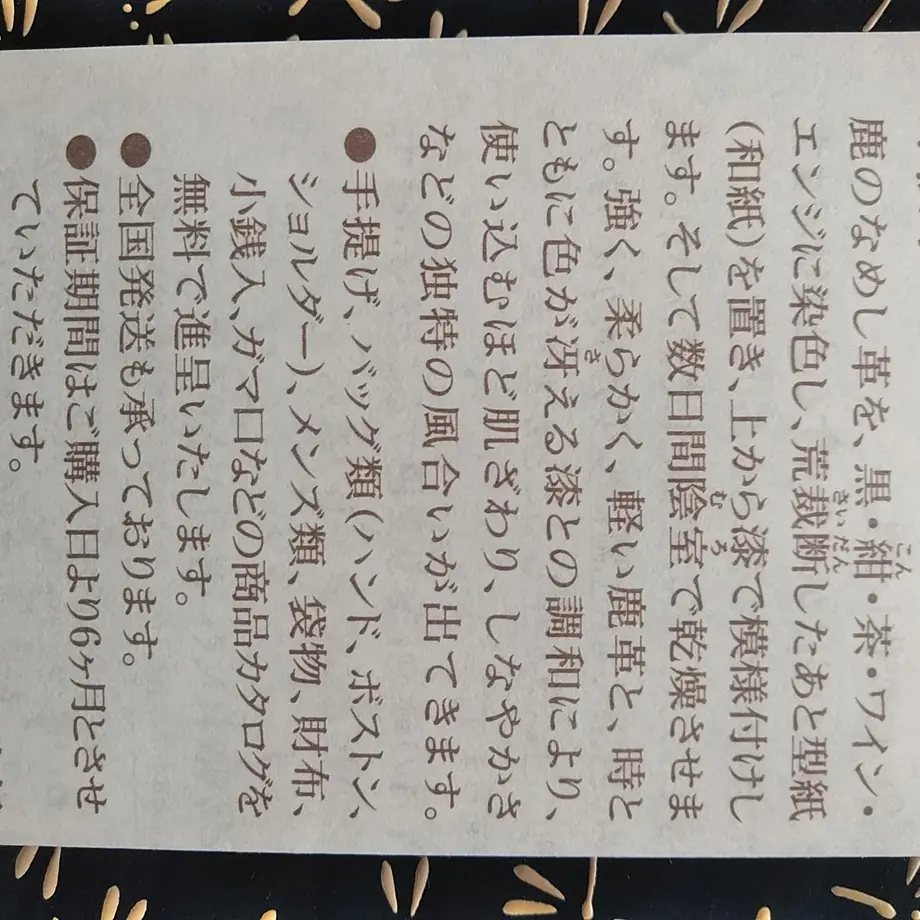 こん
鹿のなめし革を、黒・紺・茶・ワイン・
さいだん
エンジに染色し、荒裁断したあと型紙
(和紙)を置き、上から漆で模様付けし
むろ
ます。そして数日間陰室で乾燥させま
す。強く、柔らかく、軽い鹿革と、時と
さ
ともに色が冴える漆との調和により、
使い込むほど肌ざわり、しなやかさ
などの独特の風合いが出てきます。
●手提げ、バッグ類(ハンド、ボストン、
ショルダー)、メンズ類、袋物、財布、
小銭入、ガマ口などの商品カタログを
無料で進呈いたします。
●全国発送も承っております。
●保証期間はご購入日より6ヶ月とさせ
ていただきます。